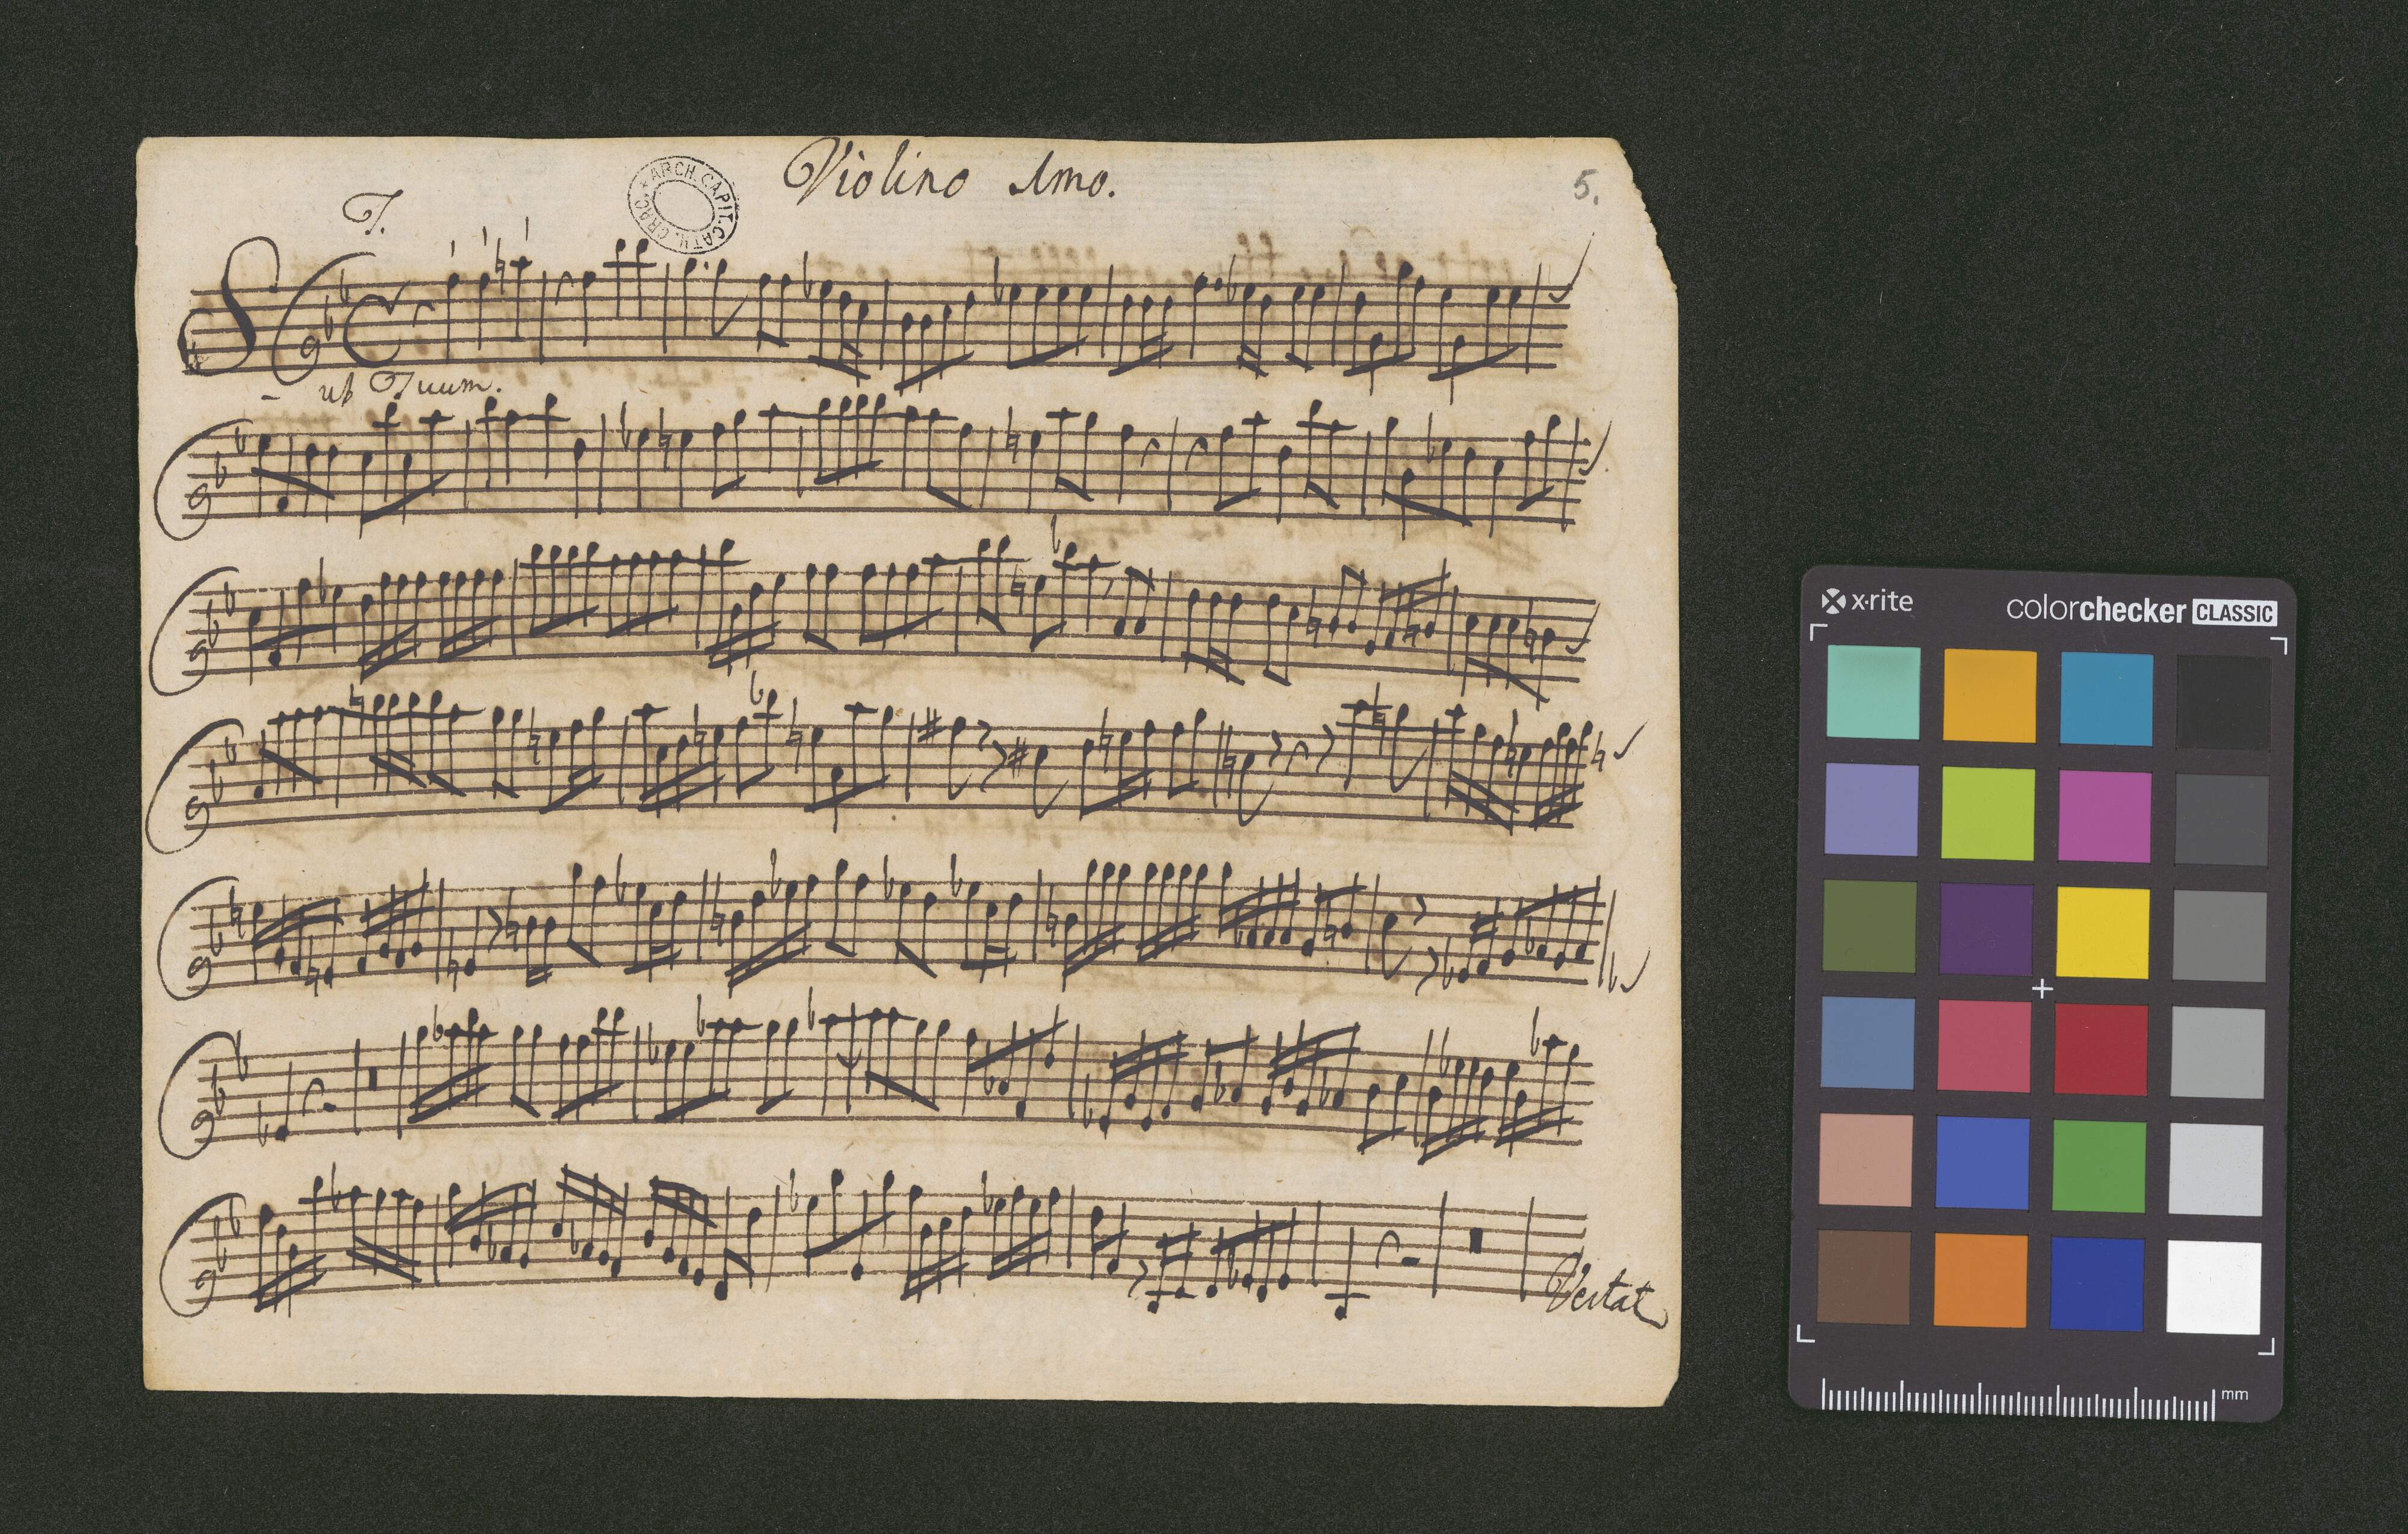 Violino 1mo.
5.
T.
ARCH. CAPIT. CATH. CRAC.
Sub Tuum.
Vertat
x·rite
colorchecker CLASSIC
mm